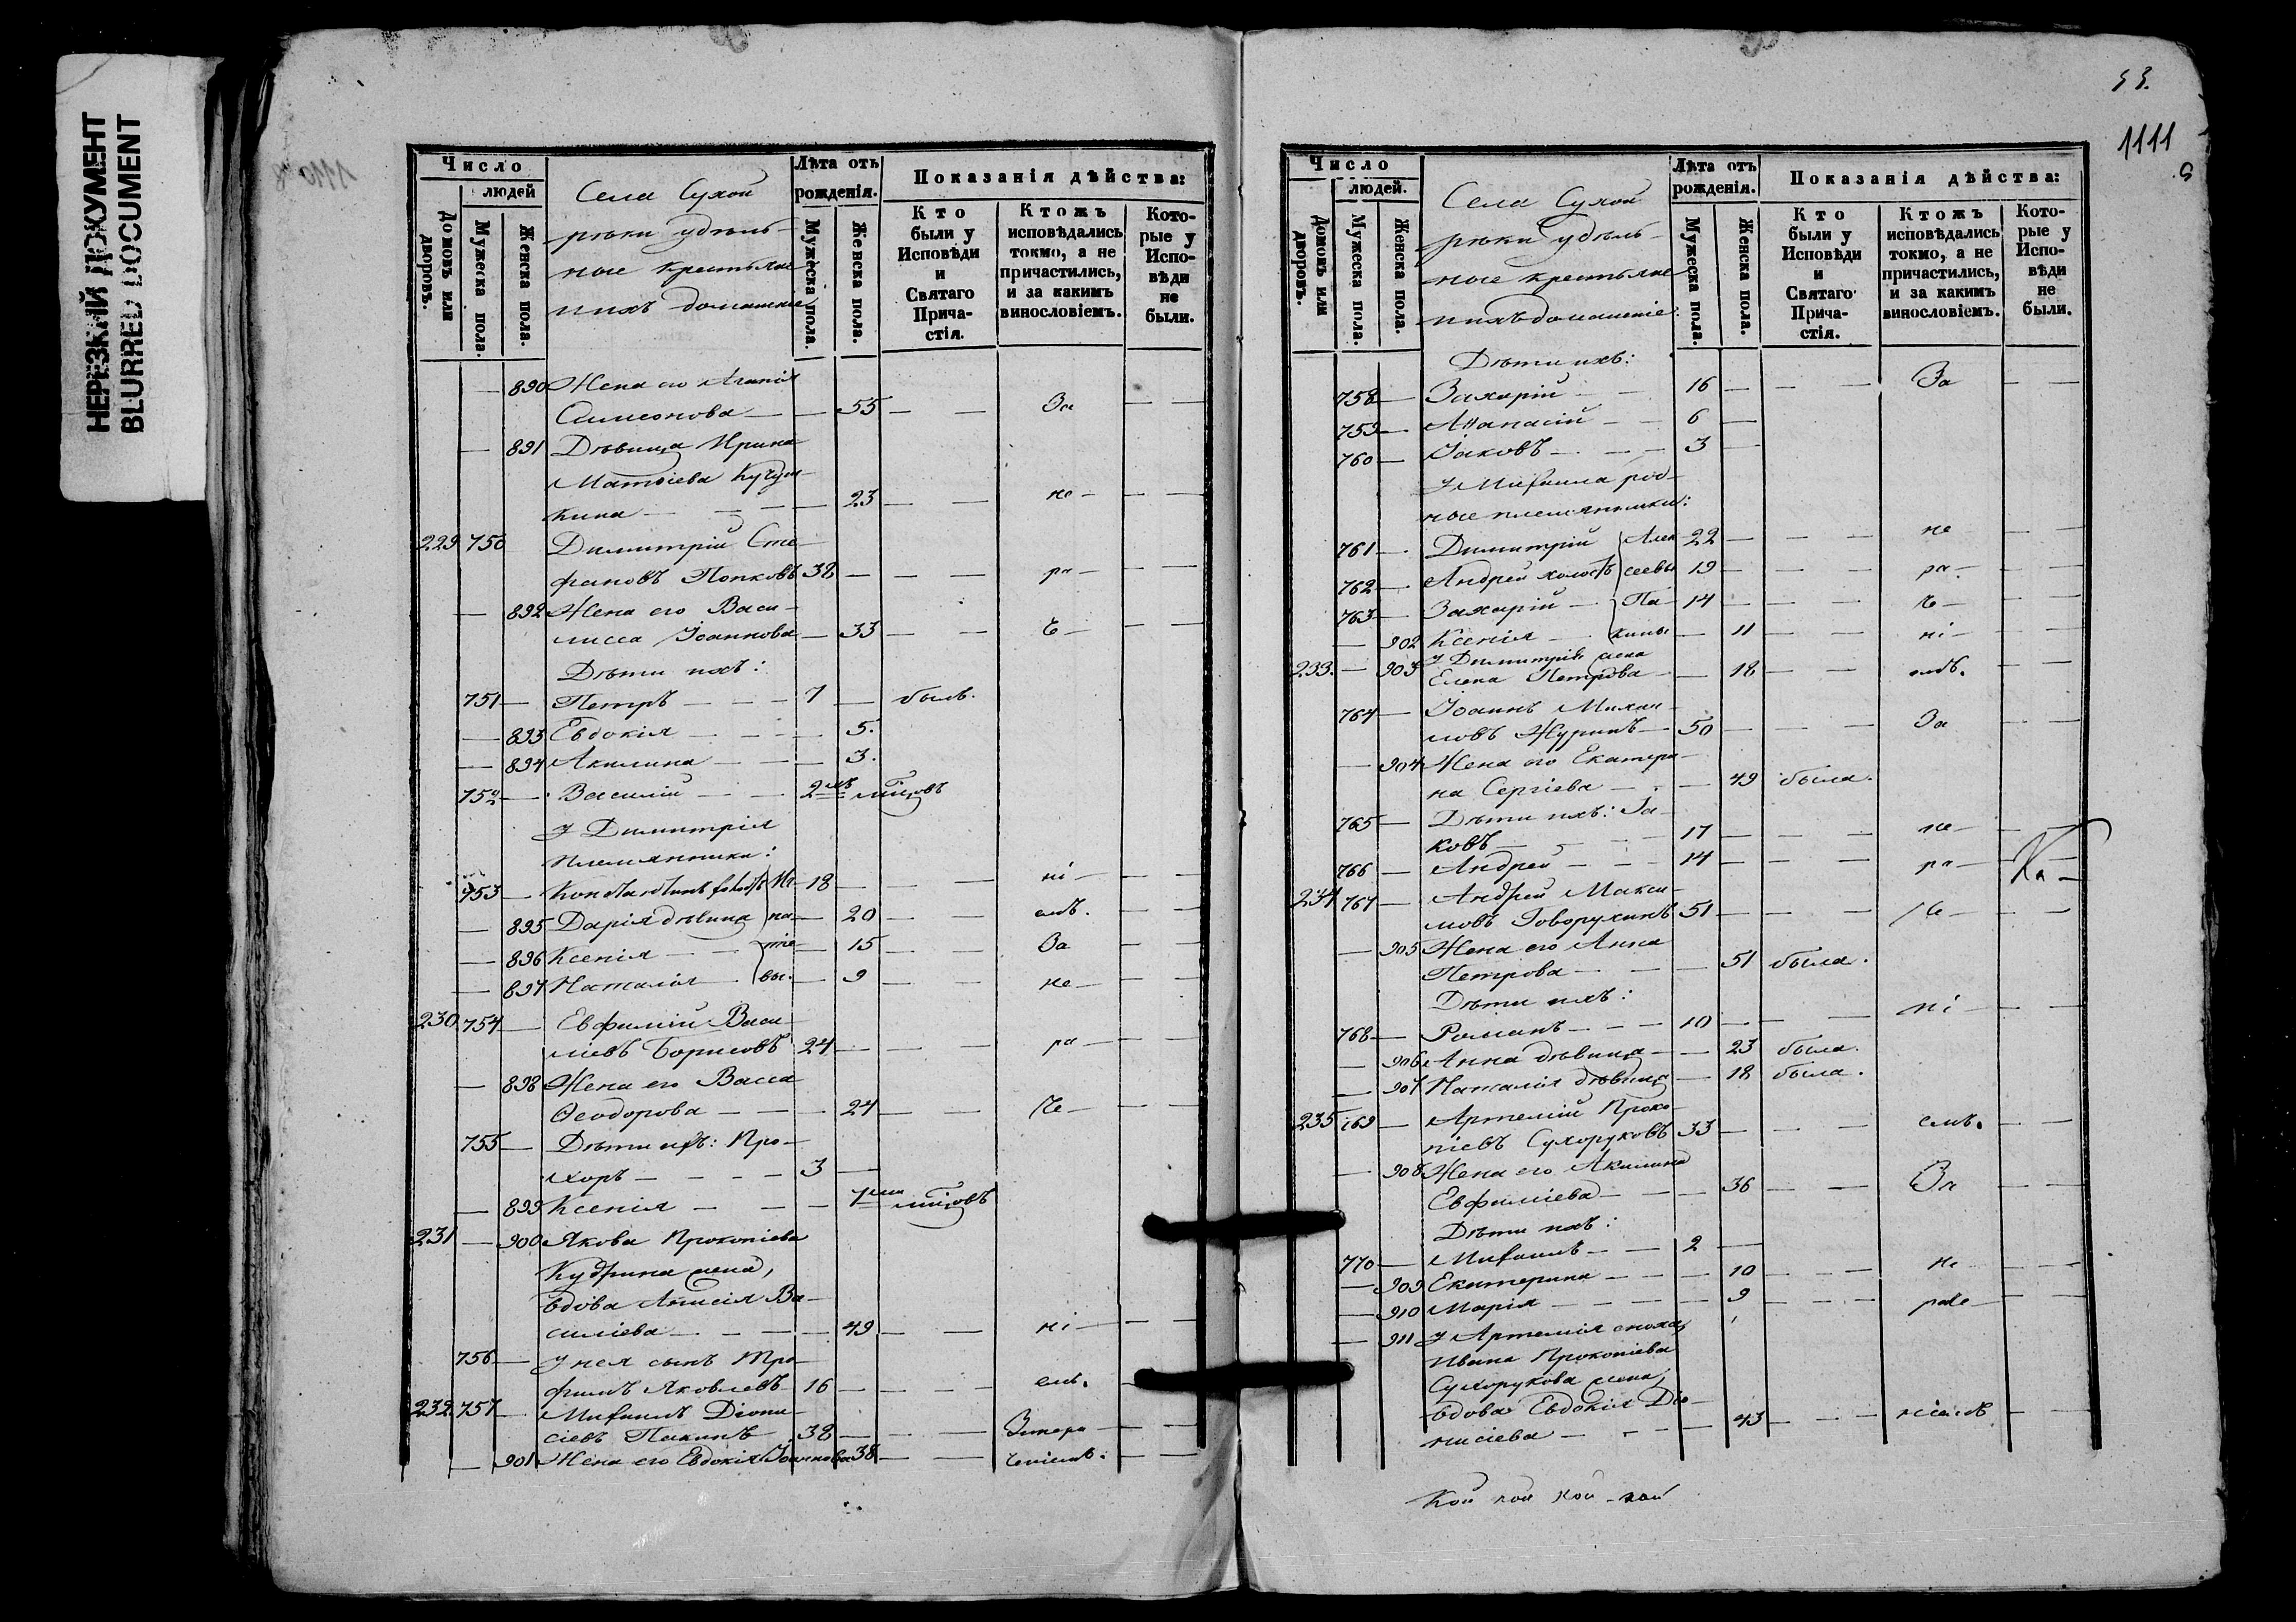 НЕРЕЗКИЙ ДОКУМЕНТ
BLURRED DOCUMENT
Число
людей
Домовъ или дворовъ.
Мужеска пола.
Женска пола.
Села Сухой
рѣки удѣль-
ные крестьяне
и ихъ домашніе
Лѣта отъ
рожденія.
Мужеска пола.
Женска пола.
Показанія дѣйства:
Кто
были у
Исповѣди
и
Святаго
Прича-
стія.
Ктожъ
исповѣдались
токмо, а не
причастились,
и за какимъ
винословіемъ.
Кото-
рые у
Испо-
вѣди
не
были.
890 Жена его Агапія
Симеонова — — 55 — — За — —
— 891 Дѣвица Ирина
Матѳіева
кина — — — 23 — — не — — —
229 750 Димитрій Сте-
фановъ Попковъ 38 — — — ра — — —
— 892 Жена его Васи-
лисса Іоаннова — 33 — — че — — —
Дѣти ихъ:
751 — Петръ — — — 7 — былъ.
— 893 Евдокія — — — 5.
— 894 Акилина — — — 3.
752 — Василій — — 2 мцовъ
У Димитрія
племянники:
753 — Константинъ холостъ Иг- 18 — — — ні — — —
— 895 Дарія дѣвица на- — 20 — — емъ. — —
— 896 Ксенія — — тіе- — 15 — — За — —
— 897 Наталія — вы. — 9 — — не — — —
230 754 — Евфимій Васи-
ліевъ Борисовъ 24 — — — ра — — —
— 898 Жена его Васса
Ѳеодорова — — — 24 — — че — — —
755 — Дѣти ихъ: Про-
хоръ — — — — 3 —
— 899 Ксенія — — — 7 мцовъ
231 — 900 Якова Прокопіева
Кудрина жена,
вдова Анисія Ва-
силіева — — — — 49 — — ні — — —
756 — У нея сынъ Тро-
фимъ Яковлевъ 16 — — — емъ. —
232 757 — Михаилъ Діони-
сіевъ Пакинъ 38 — — — Занера — — —
— 901 Жена его Евдокія Іоаннова 38 — — ченіемъ. — —
53.
1111
Число
людей.
Домовъ или дворовъ.
Мужеска пола.
Женска пола.
Села Сухой
рѣки удѣль-
ные крестьяне
и ихъ домашніе
Лѣта отъ
рожденія.
Мужеска пола.
Женска пола.
Показанія дѣйства:
Кто
были у
Исповѣди
и
Святаго
Прича-
стія.
Ктожъ
исповѣдались
токмо, а не
причастились,
и за какимъ
винословіемъ.
Кото-
рые у
Испо-
вѣди
не
были.
Дѣти ихъ:
758 — Захарій — — 16 — — — За — —
759 — Аѳанасій — — 6 —
760 — Іаковъ — — — 3 —
У Михаила род-
ные племянники:
761 — Димитрій Алек- 22 — — — не —
762 — Андрей холостъ сеевы 19 — — — ра — —
763 — Захарій — Па- 14 — — — че — — —
— 902 Ксенія — кины — 11 — — ні — — —
233. — 903 У Димитрія жена
Елена Петрова — — 18 — — емъ. — —
764 — Іоаннъ Михаи-
ловъ Журинъ — 50 — — — За — —
— 904 Жена его Екатери-
на Сергіева — — — 49 была.
765 — Дѣти ихъ: Іа-
ковъ — — — 17 — — — не — — —
766 — Андрей — — — 14 — — — ра — Ка —
234 767 — Андрей Макси-
мовъ Говорухинъ 51 — — — че — — —
— 905 Жена его Анна
Петрова — — — 51 была.
Дѣти ихъ:
768 — Романъ — — — 10 — — — ні — —
— 906 Анна дѣвица — — 23 была.
— 907 Наталія дѣвица — 18 была.
235 769 — Артемій Проко-
піевъ Сухоруковъ 33 — — — емъ. — —
— 908 Жена его Акилина
Евфиміева — — — 36 — — За — —
Дѣти ихъ:
770 — Михаилъ — — 2 —
— 909 Екатерина — — — 10 — — — не — — —
— 910 Марія — — — — — 9 — — — раче — — —
— 911 У Артемія сноха,
Ивана Прокопіева
Сухорукова жена,
вдова Евдокія Діо-
нисіева — — — — 43 — — — ніемъ — —